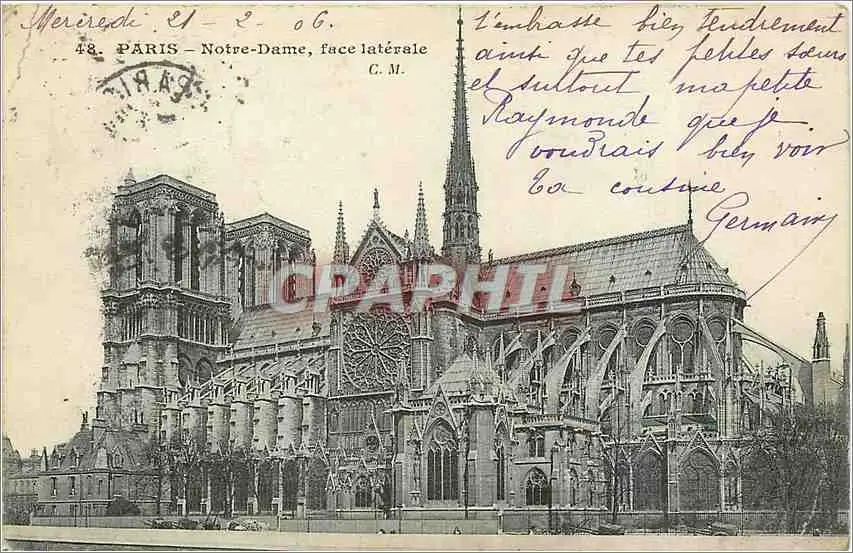 Mercredi 21 - 2 - 06.
48. PARIS – Notre-Dame, face latérale
C. M.
PARIS
t'embrasse bien tendrement
ainsi que tes petites sœurs
et surtout ma petite
Raymonde que je
voudrais bien voir
Ta cousine
Germain
CPARTHIL